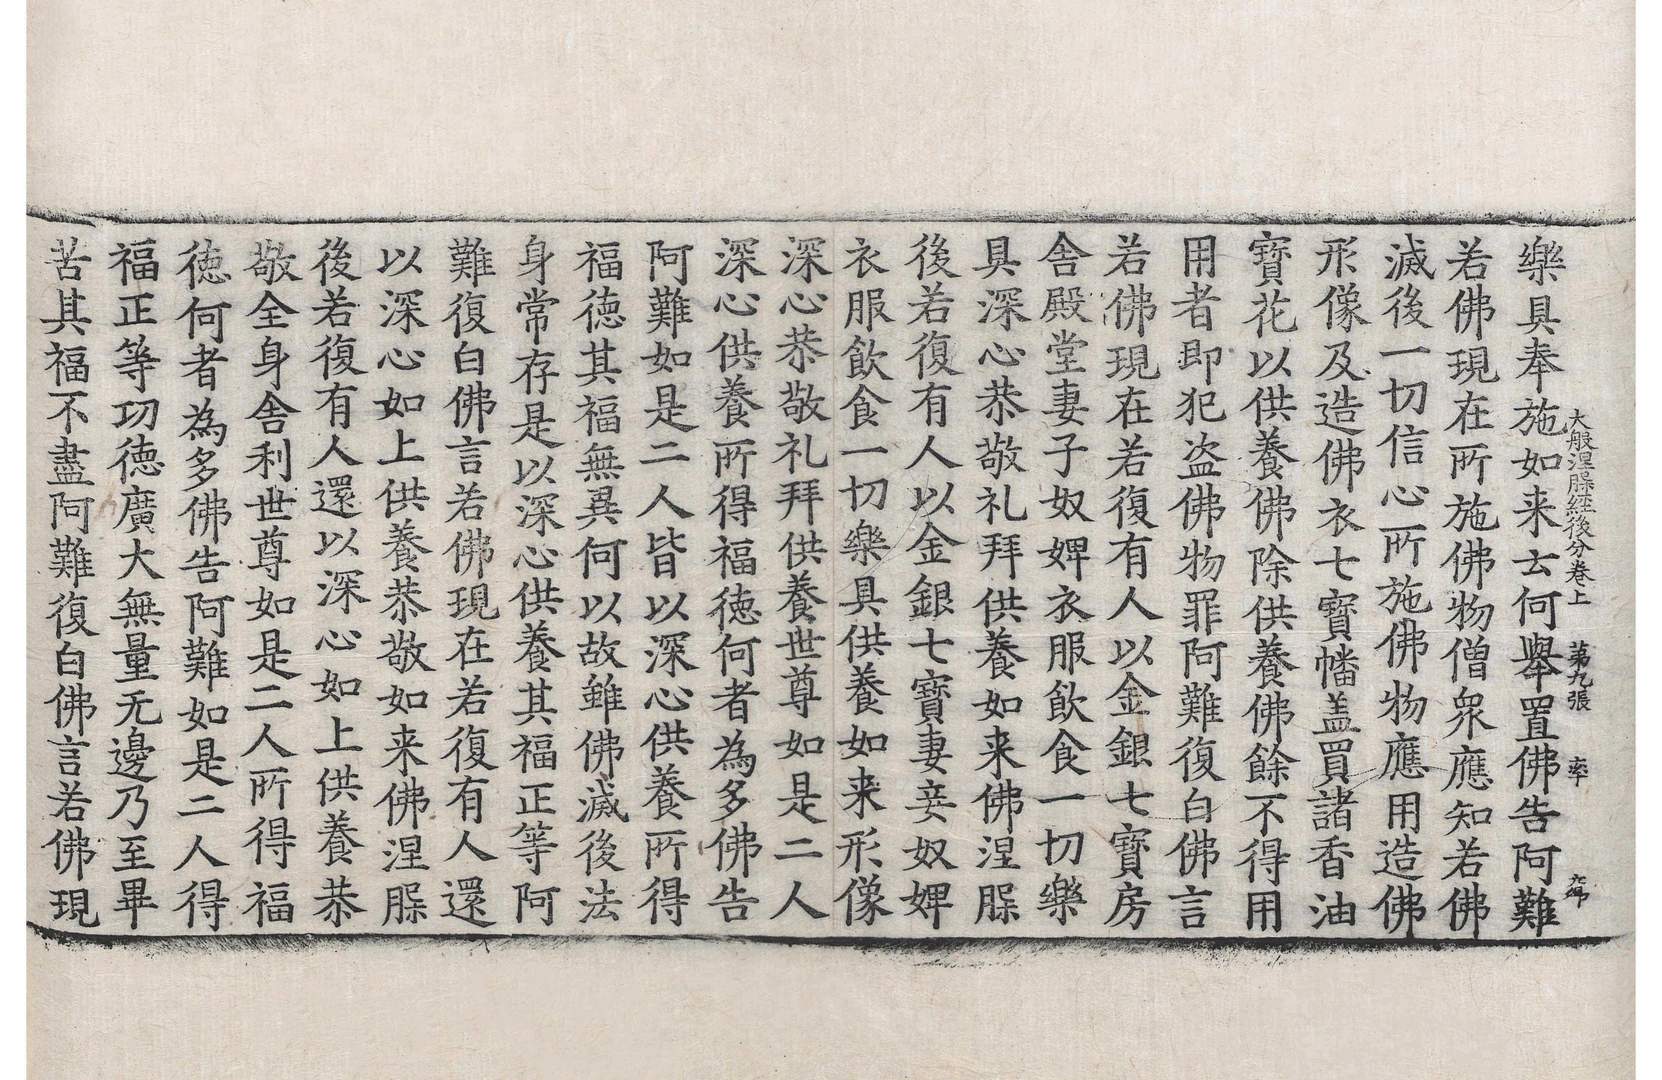 大般涅槃經後分卷上 第九張 率
樂具奉施如来云何舉置佛告阿難
若佛現在所施佛物僧衆應知若佛
滅後一切信心所施佛物應用造佛
形像及造佛衣七寶幡盖買諸香油
寶花以供養佛除供養佛餘不得用
用者即犯盗佛物罪阿難復白佛言
若佛現在若復有人以金銀七寶房
舎殿堂妻子奴婢衣服飲食一切樂
具深心恭敬礼拜供養如来佛涅槃
後若復有人以金銀七寶妻妾奴婢
衣服飲食一切樂具供養如来形像
深心恭敬礼拜供養世尊如是二人
深心供養所得福徳何者為多佛告
阿難如是二人皆以深心供養所得
福徳其福無異何以故雖佛滅後法
身常存是以深心供養其福正等阿
難復白佛言若佛現在若復有人還
以深心如上供養恭敬如来佛涅槃
後若復有人還以深心如上供養恭
敬全身舎利世尊如是二人所得福
徳何者為多佛告阿難如是二人得
福正等功徳廣大無量无邊乃至畢
苦其福不盡阿難復白佛言若佛現